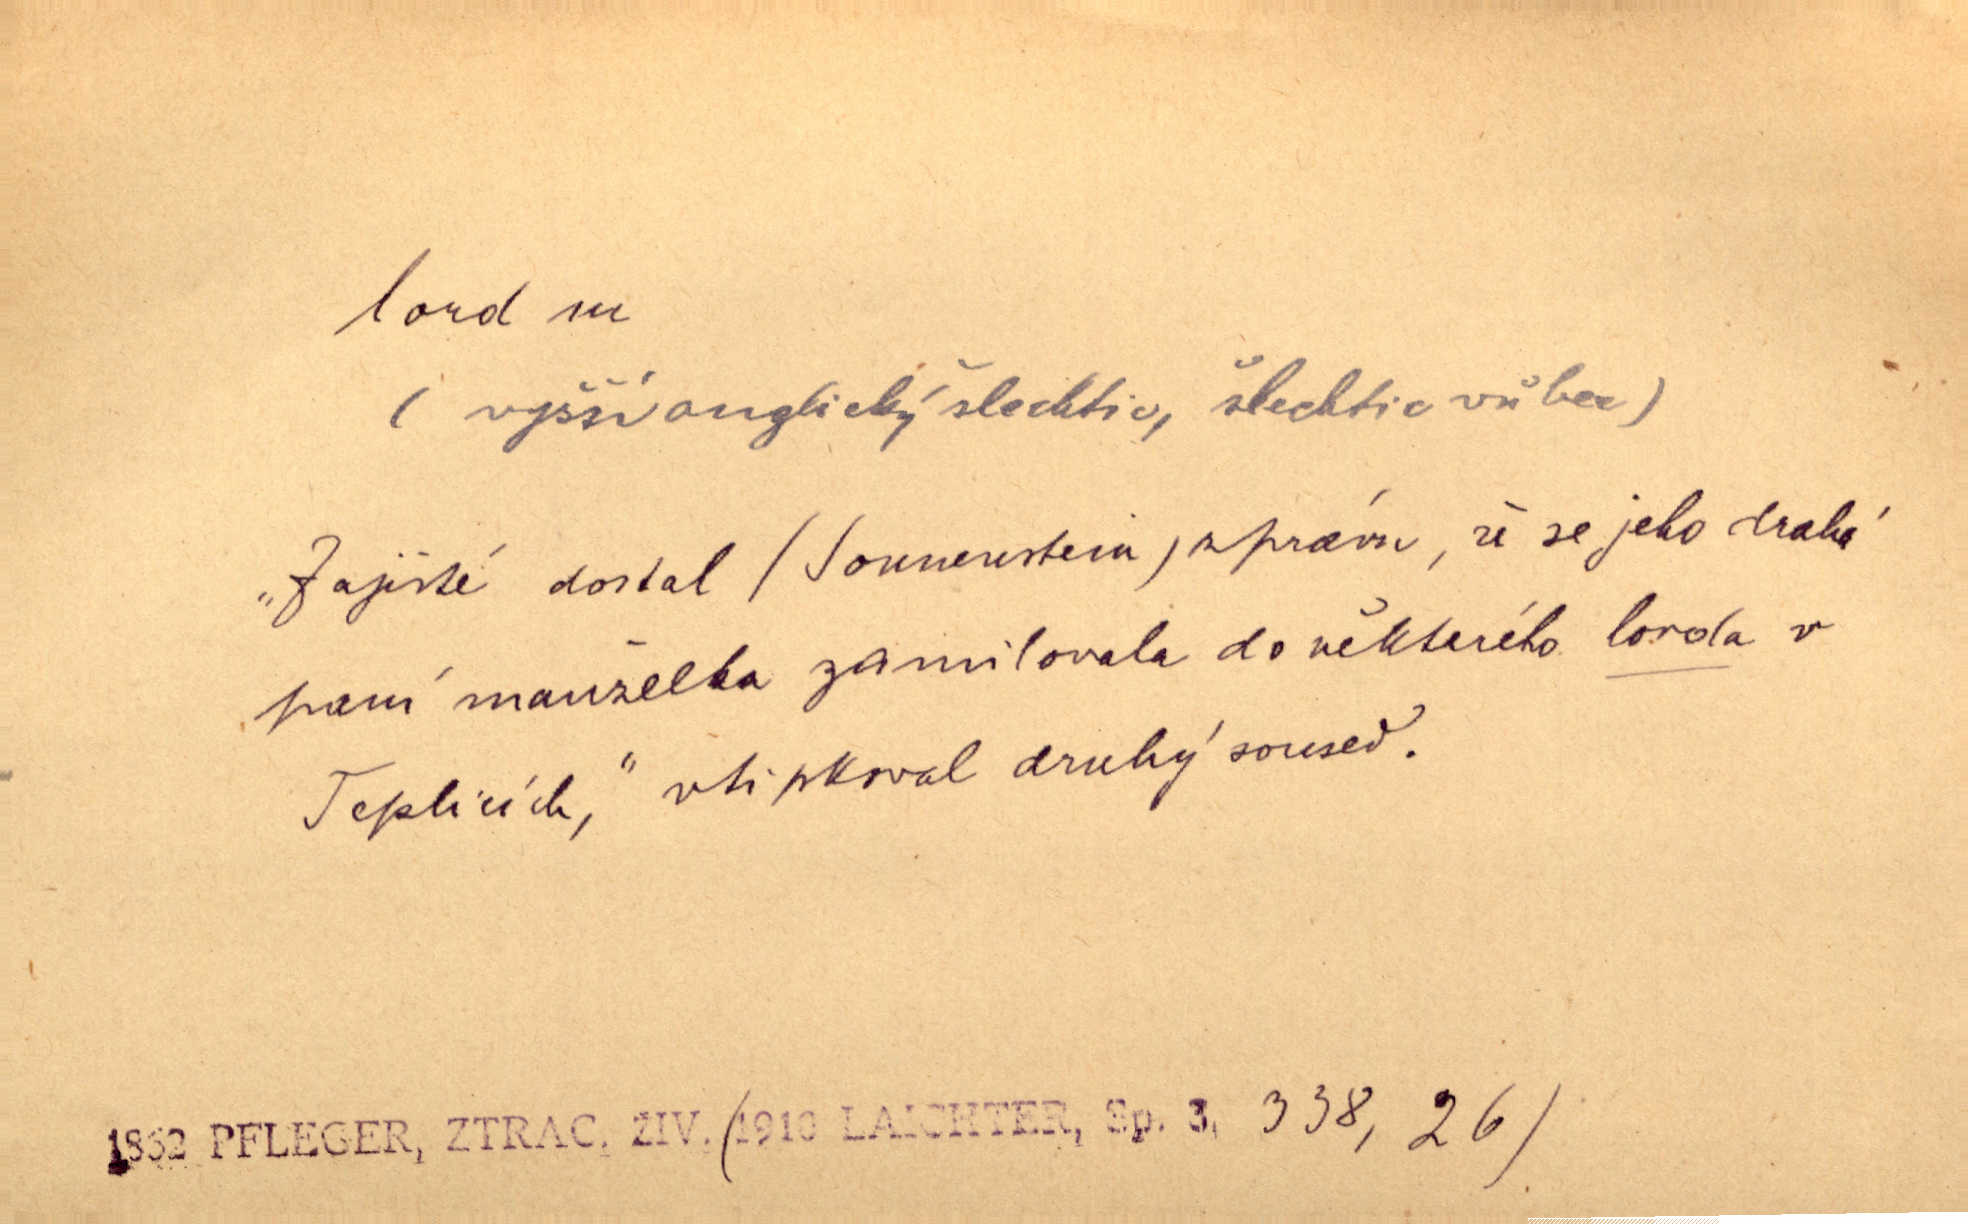 lord m
( vyšší anglický šlechtic, šlechtic vůbec)
„Zajisté dostal (Sonnenstein) zprávu, že se jeho drahá
paní manželka zamilovala do některého lorda v
Teplicích,“ vtipkoval druhý soused.
1862 PFLEGER, ZTRAC. ŽIV. (1910 LAICHTER, Sp. 3, 338, 26)